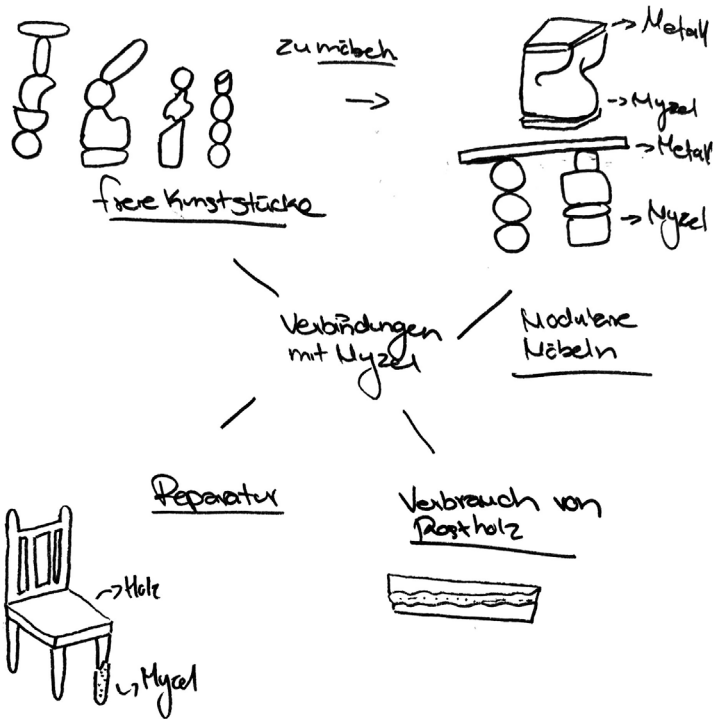 zu möbeln
→ Metall
→ Myzel
→ Metall
→ Myzel
freie Kunststücke
Verbindungen
mit Myzel
Modulare
Möbeln
Reparatur
Verbrauch von
Restholz
→ Holz
→ Myzel